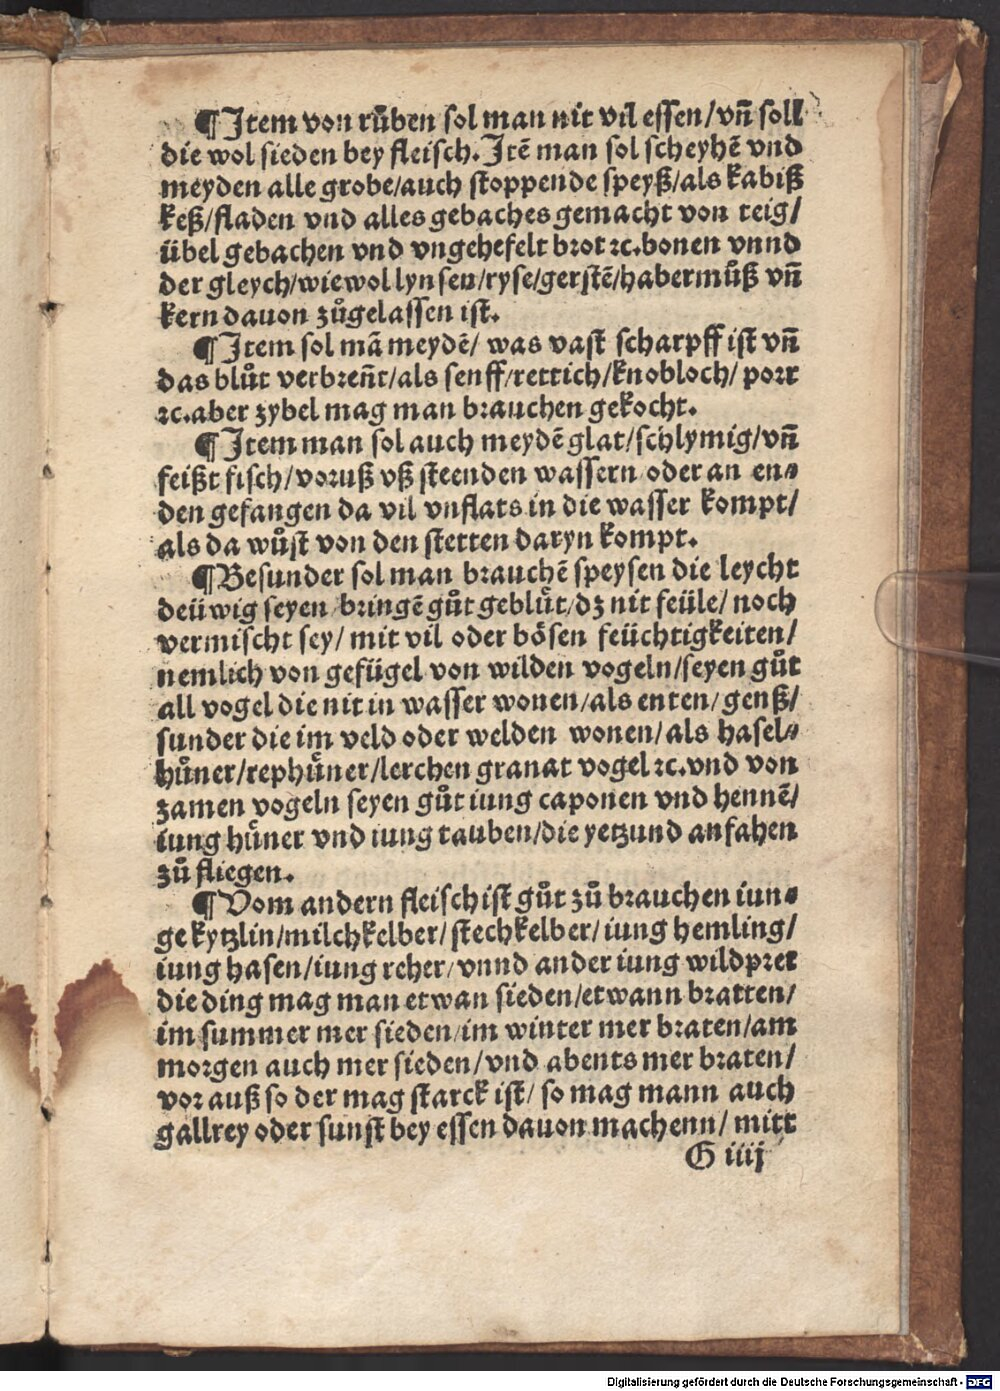 ¶Item von růben sol man nit vil essen/vn̄ soll
die wol sieden bey fleisch. Itē man sol scheyhē vnd
meyden alle grobe/auch stoppende speyß/als kabiß
keß/fladen vnd alles gebaches gemacht von teig/
übel gebachen vnd vngehefelt brot ⁊c. bonen vnnd
der gleych/wiewol lynsen/ryse/gerstē/habermůß vn̄
kern dauon zůgelassen ist.
¶Item sol mā meydē/ was vast scharpff ist vn̄
das blůt verbren̄t/als senff/rettich/knobloch/ porr
⁊c. aber zybel mag man brauchen gekocht.
¶Item man sol auch meydē glat/schlymig/vn̄
feißt fisch/voruß vß steenden wassern oder an en⸗
den gefangen da vil vnflats in die wasser kompt/
als da wůst von den stetten daryn kompt.
¶Besunder sol man brauchē speysen die leycht
deüwig seyen bringē gůt geblüt/dz nit feüle/ noch
vermischt sey/ mit vil oder bösen feüchtigkeiten/
nemlich von gefügel von wilden vogeln/seyen gůt
all vogel die nit in wasser wonen/als enten/genß/
sunder die im veld oder welden wonen/als hasel⸗
hüner/rephüner/lerchen granat vogel ⁊c. vnd von
zamen vogeln seyen gůt iung caponen vnd hennē/
iung hüner vnd iung tauben/die yetzund anfahen
zů fliegen.
¶Vom andern fleisch ist gůt zů brauchen iun⸗
ge kytzlin/milchkelber/stechkelber/iung hemling/
iung hasen/iung reher/vnnd ander iung wildpret
die ding mag man etwan sieden/etwann bratten/
im summer mer sieden/im winter mer braten/am
morgen auch mer sieden/vnd abents mer braten/
vor auß so der mag starck ist/ so mag mann auch
gallrey oder sunst bey essen dauon machenn/ mitt
G iiij
Digitalisierung gefördert durch die Deutsche Forschungsgemeinschaft - DFG